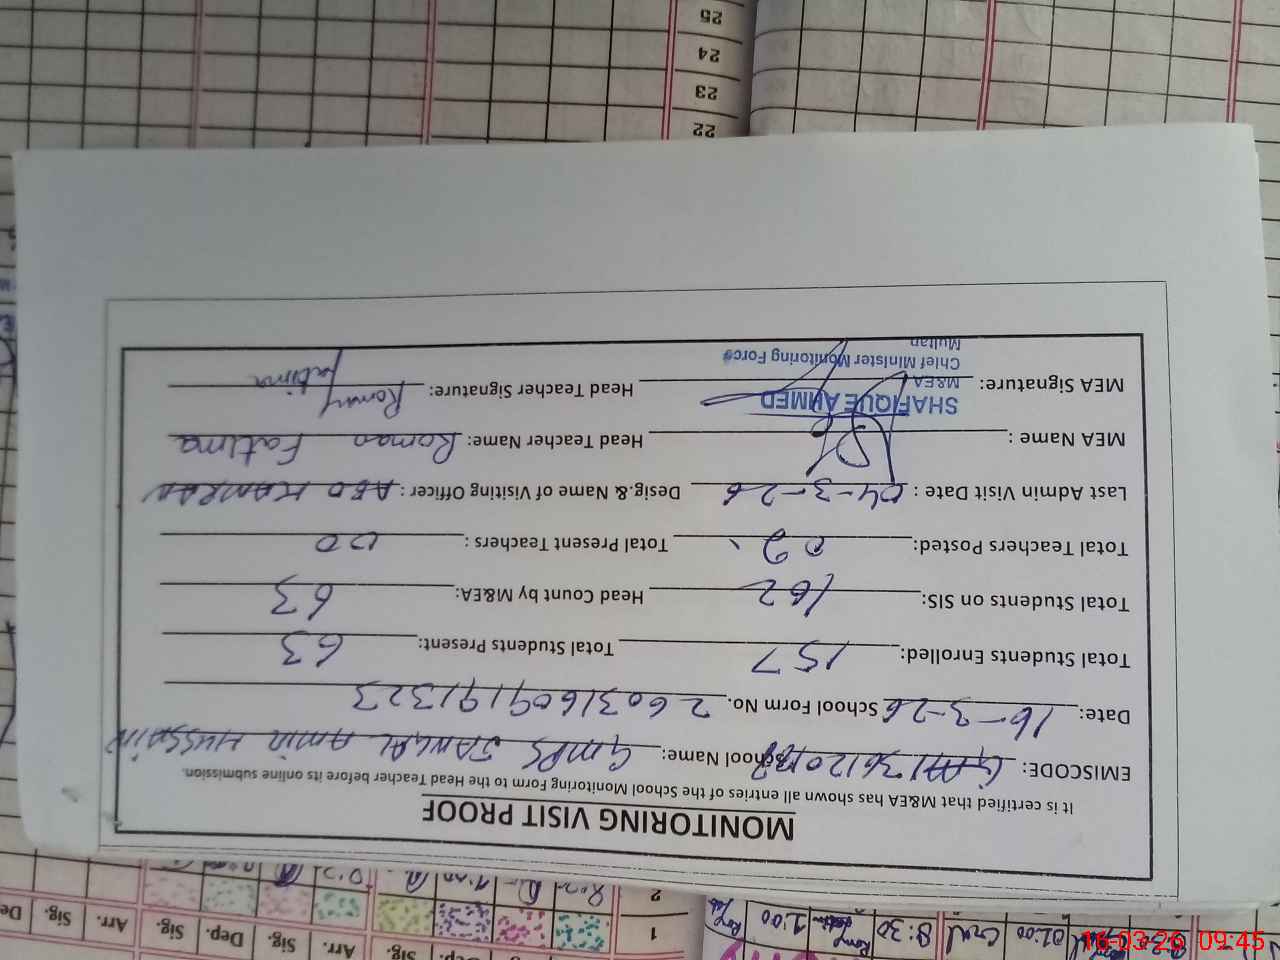 MONITORING VISIT PROOF
It is certified that M&EA has shown all entries of the School Monitoring Form to the Head Teacher before its online submission.
EMISCODE: 36120187 School Name: GMPS JANGAL AMIR HUSSAIN
Date: 16-3-26 School Form No. 2603160919 1323
Total Students Enrolled: 157 Total Students Present: 63
Total Students on SIS: 162 Head Count by M&EA: 63
Total Teachers Posted: 02 Total Present Teachers : 00
Last Admin Visit Date : 04-3-26 Desig,& Name of Visiting Officer : AEO KAMRAN
MEA Name : Head Teacher Name: Roman Fatima
SHAFIQUE AHMED
MEA Signature: Head Teacher Signature: Roman Fatima
M&EA
Chief Minister Monitoring Force
Multan
22
23
24
25
1
2
Arr. Sig. Dep. Sig. Arr. Sig.
8:30
1:00
01:00
16-03-26 09:45